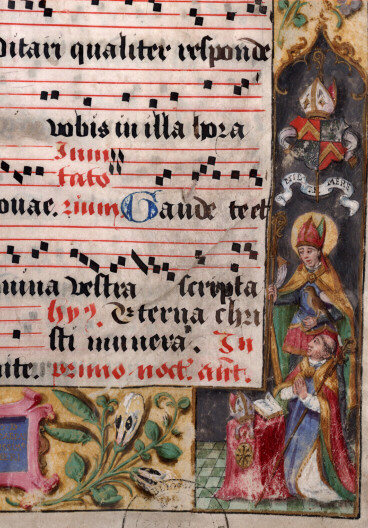 ditari qualiter responde
vobis in illa hora
Inui
tato
ouae. rium Gaude te et
mina vestra scripta
hyꝫ. Eterna chri
sti munera. In
nite. primo noct. ant.